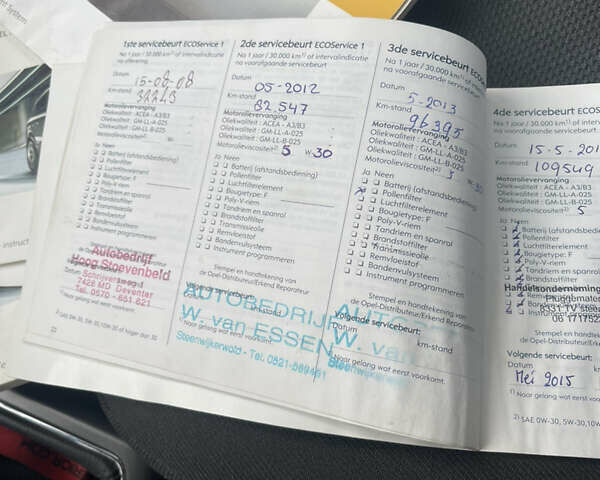 1ste servicebeurt ECOService 1
Na 1 jaar / 30.000 km¹⁾ of intervalindicatie
na aflevering
Datum 15-08-08
Km-stand
Motorolievervanging
Oliekwaliteit : ACEA - A3/B3
Oliekwaliteit : GM-LL-A-025
Oliekwaliteit : GM-LL-B-025
Motorolieviscositeit²⁾
Ja Neen
Batterij (afstandsbediening)
Pollenfilter
Luchtfilterelement
Bougietype: F
Poly-V-riem
Tandriem en spanrol
Brandstoffilter
Transmissieolie
Remvloeistof
Bandenvulsysteem
Instrument programmeren
Autobedrijf
Hoog Stoevenbeld
7428 MD Deventer
Tel. 0570 - 651 621
22
2de servicebeurt ECOService 1
Na 1 jaar / 30.000 km¹⁾ of intervalindicatie
na voorafgaande servicebeurt
Datum 05-2012
Km-stand 82.547
Motorolievervanging
Oliekwaliteit : ACEA - A3/B3
Oliekwaliteit : GM-LL-A-025
Oliekwaliteit : GM-LL-B-025
Motorolieviscositeit²⁾ 5 W-30
Ja Neen
Batterij (afstandsbediening)
Pollenfilter
Luchtfilterelement
Bougietype: F
Poly-V-riem
Tandriem en spanrol
Brandstoffilter
Transmissieolie
Remvloeistof
Bandenvulsysteem
Instrument programmeren
Stempel en handtekening van
de Opel-Distributeur/Erkend Reparateur
Volgende servicebeurt:
AUTOBEDRIJF
W. van ESSEN
Steenwijkerwold - Tel. 0521-589491
Naar gelang wat eerst voorkomt.
3de servicebeurt ECOService 1
Na 1 jaar / 30.000 km¹⁾ of intervalindicatie
na voorafgaande servicebeurt
Datum 5-2013
Km-stand 96395
Motorolievervanging
Oliekwaliteit : ACEA - A3/B3
Oliekwaliteit : GM-LL-A-025
Oliekwaliteit : GM-LL-B-025
Motorolieviscositeit²⁾ 5 W-30
Ja Neen
Batterij (afstandsbediening)
Pollenfilter
Luchtfilterelement
Bougietype: F
Poly-V-riem
Tandriem en spanrol
Brandstoffilter
Transmissieolie
Remvloeistof
Bandenvulsysteem
Instrument programmeren
Stempel en handtekening van
de Opel-Distributeur/Erkend Reparateur
Volgende servicebeurt:
Datum km-stand
W. va
Naar gelang wat eerst voorkomt.
4de servicebeurt ECOS
Na 1 jaar / 30.000 km¹⁾ of interval
na voorafgaande servicebeurt
Datum 15-5-201
Km-stand 109549
Motorolievervanging
Oliekwaliteit : ACEA - A3/B3
Oliekwaliteit : GM-LL-A-025
Oliekwaliteit : GM-LL-B-025
Motorolieviscositeit²⁾ 5
Ja Neen
Batterij (afstandsbedien
Pollenfilter
Luchtfilterelement
Bougietype: F
Poly-V-riem
Tandriem en spanrol
Brandstoffilter
Handelsonderneming
Volgende servicebeurt:
Datum
Mei 2015
¹⁾ Naar gelang wat eerst voor
²⁾ SAE 0W-30, 5W-30,10W